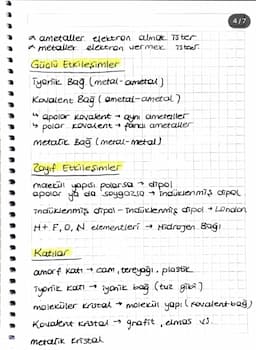 4/7
* ametaller elektron almak ister
* metaller elektron vermek ister.
Güçlü Etkileşimler
İyonik Bağ (metal-ametal)
Kovalent Bağ (ametal-ametal)
↳ apolar kovalent → aynı ametaller
↳ polar kovalent → farklı ametaller
metalik Bağ (metal-metal)
Zayıf Etkileşimler
molekül yapılı polarsa → dipol
apolar ya da soygazsa → indüklenmiş dipol
indüklenmiş dipol - indüklenmiş dipol → London
H + F, O, N elementleri → Hidrojen Bağı
Katılar
amorf katı → cam, tereyağı, plastik
İyonik katı → iyonik bağ (tuz gibi)
moleküler kristal → molekül yapı (kovalent bağ)
Kovalent kristal → grafit, elmas vs.
metalik kristal